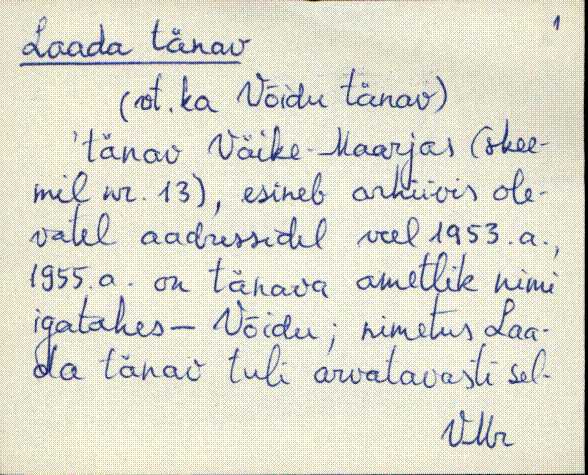 1
Laada tänav
(vt. ka Võidu tänav)
'tänav Väike-Maarjas (skee-
mil nr. 13), esineb arhiivis ole-
vatel aadressidel veel 1953.a.,
1955.a. on tänava ametlik nimi
igatahes – Võidu; nimetus Laa-
da tänav tuli arvatavasti sel-
VMr